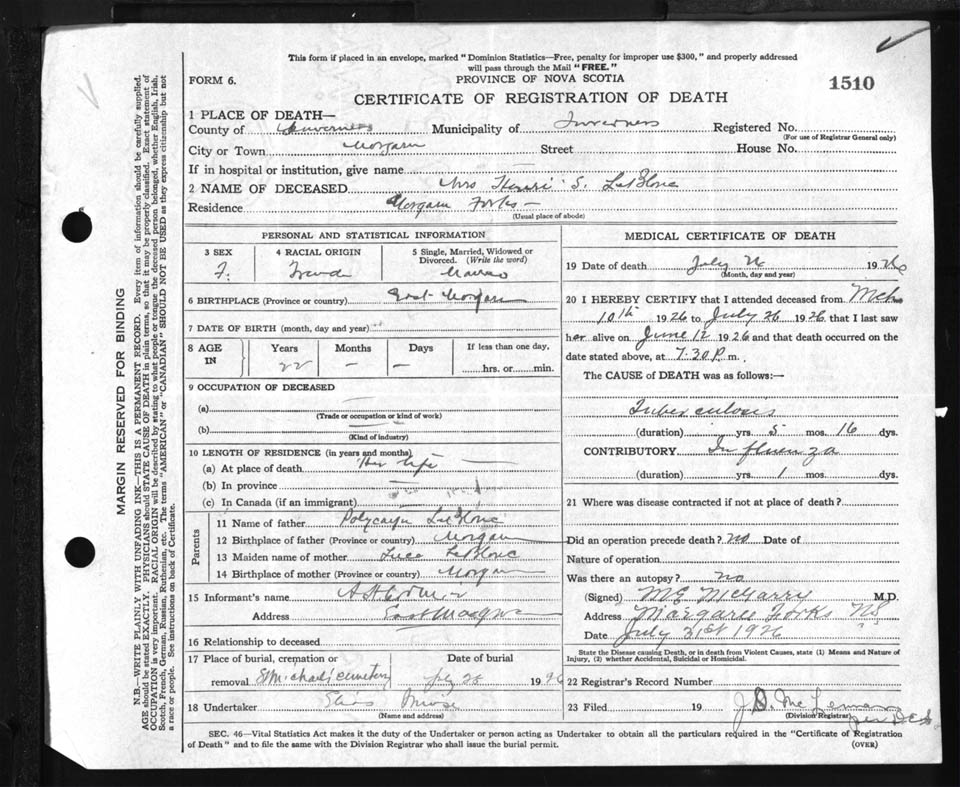 This form if placed in an envelope, marked "Dominion Statistics—Free, penalty for improper use $300," and properly addressed
will pass through the Mail "FREE."
FORM 6.
PROVINCE OF NOVA SCOTIA
1510
CERTIFICATE OF REGISTRATION OF DEATH
1 PLACE OF DEATH—
County of Inverness Municipality of Inverness Registered No.
(For use of Registrar General only)
City or Town Street House No.
If in hospital or institution, give name
2 NAME OF DECEASED Mrs Henri S. LeBlanc
Residence Forks
(Usual place of abode)
PERSONAL AND STATISTICAL INFORMATION
3 SEX
F.
4 RACIAL ORIGIN
5 Single, Married, Widowed or
Divorced. (Write the word)
6 BIRTHPLACE (Province or country) East
7 DATE OF BIRTH (month, day and year)
8 AGE IN Years Months Days If less than one day,
22 — — hrs. or min.
9 OCCUPATION OF DECEASED
(a)
(Trade or occupation or kind of work)
(b)
(Kind of industry)
10 LENGTH OF RESIDENCE (in years and months)
(a) At place of death Her life
(b) In province
(c) In Canada (if an immigrant)
Parents
11 Name of father LeBlanc
12 Birthplace of father (Province or country)
13 Maiden name of mother Luce LeBlanc
14 Birthplace of mother (Province or country)
15 Informant's name
Address East
16 Relationship to deceased
17 Place of burial, cremation or
removal St Michael's Cemetery
Date of burial
July 28 1926
18 Undertaker
Name Address
MEDICAL CERTIFICATE OF DEATH
19 Date of death July 26 1926
(Month, day and year)
20 I HEREBY CERTIFY that I attended deceased from Mch
10th 1926 to July 26 1926 that I last saw
her alive on June 12 1926 and that death occurred on the
date stated above, at 7.30 P. m.
The CAUSE of DEATH was as follows:—
Tuberculosis
(duration) yrs. 5 mos. 16 dys.
CONTRIBUTORY Influenza
(duration) yrs. 1 mos. dys.
21 Where was disease contracted if not at place of death?
Did an operation precede death? no Date of
Nature of operation
Was there an autopsy? no
(Signed) M E McGarry M.D.
Address Margaree Forks NS
Date July 31st 1926
State the Disease causing Death, or in death from Violent Causes, state (1) Means and Nature of
Injury, (2) whether Accidental, Suicidal or Homicidal.
22 Registrar's Record Number
23 Filed 19 J. D. McLennan
(Division Registrar)
SEC. 46—Vital Statistics Act makes it the duty of the Undertaker or person acting as Undertaker to obtain all the particulars required in the "Certificate of Registration
of Death" and to file the same with the Division Registrar who shall issue the burial permit.
(OVER)
MARGIN RESERVED FOR BINDING
N.B.—WRITE PLAINLY WITH UNFADING INK—THIS IS A PERMANENT RECORD. Every item of information should be carefully supplied.
AGE should be stated EXACTLY. PHYSICIANS should STATE CAUSE OF DEATH in plain terms, so that it may be properly classified. Exact statement of
OCCUPATION is very important. RACIAL ORIGIN will be described by stating to what people or tongue the deceased person belonged, whether English, Irish,
Scotch, French, German, Russian, Ruthenian, etc. The terms "AMERICAN" or "CANADIAN" SHOULD NOT BE USED as they express citizenship but not
a race or people. See instructions on back of Certificate.